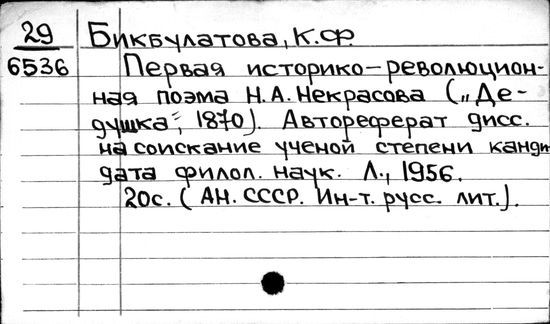 29 Бикбулатова, К.Ф.
6536 Первая историко-революцион-
ная поэма Н.А.Некрасова („Де-
душка", 1870). Автореферат дисс.
на соискание ученой степени канди
дата филол. наук. Л., 1956.
20с. (АН. СССР. Ин-т. русс. лит.).